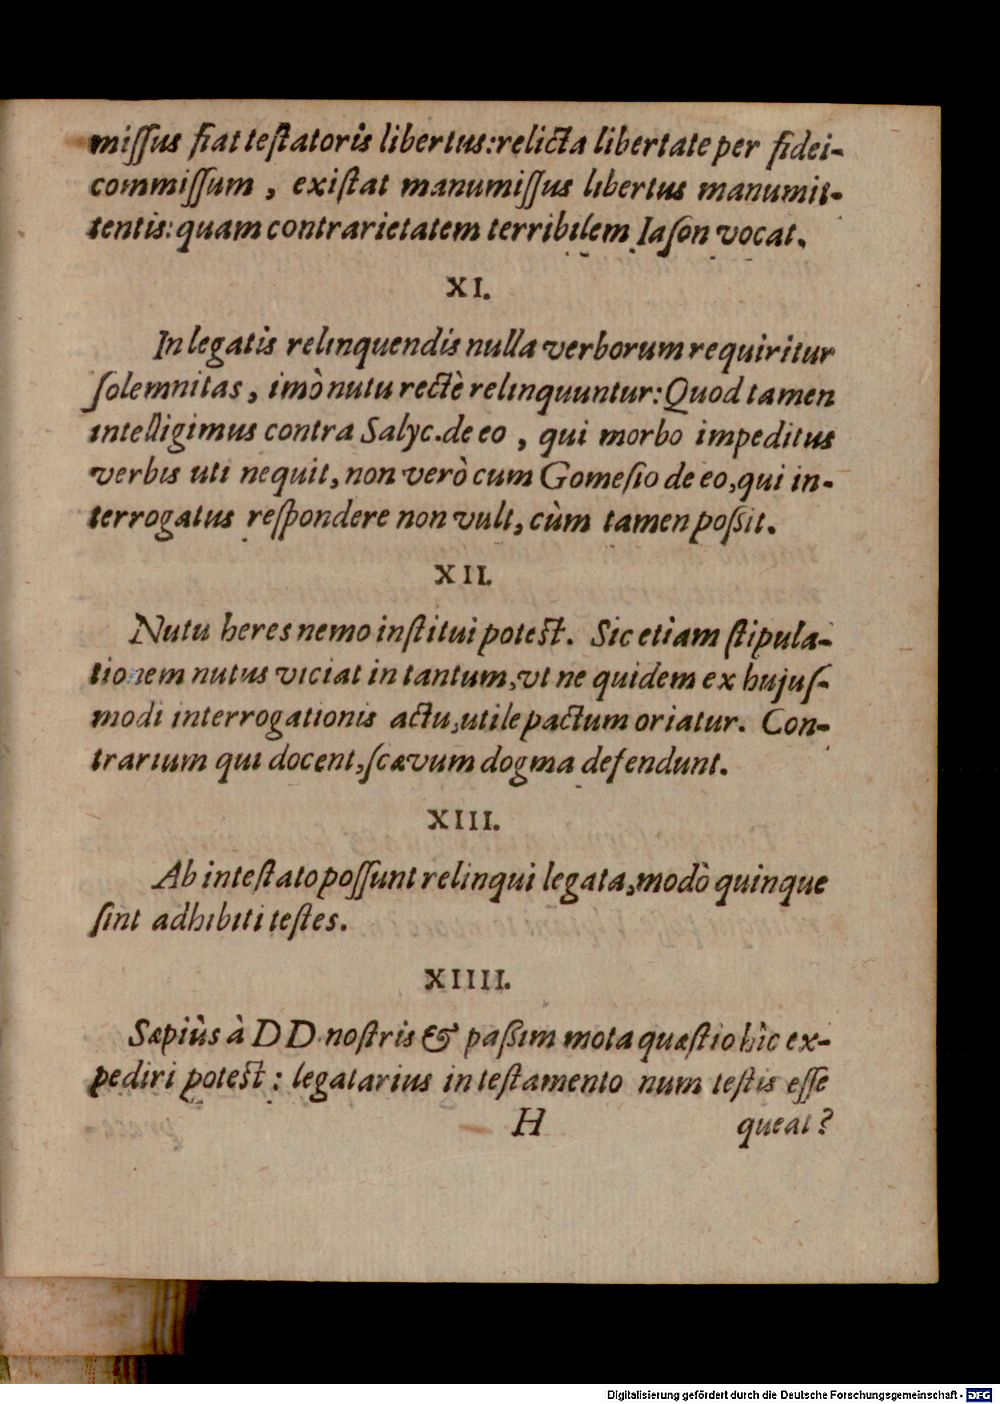 miſſus fiat teſtatoris libertus: relicta libertate per fidei-
commiſſum, exiſtat manumiſſus libertus manumit-
tentis: quam contrarietatem terribilem Iaſon vocat.
XI.
In legatis relinquendis nulla verborum requiritur
ſolemnitas, imò nutu rectè relinquuntur: Quod tamen
intelligimus contra Salyc. de eo, qui morbo impeditus
verbis uti nequit, non verò cum Gomeſio de eo, qui in-
terrogatus reſpondere non vult, cùm tamen poſsit.
XII.
Nutu heres nemo inſtitui poteſt. Sic etiam ſtipula-
tionem nutus viciat in tantum, vt ne quidem ex hujuſ-
modi interrogationis actu, utile pactum oriatur. Con-
trarium qui docent, ſcævum dogma defendunt.
XIII.
Ab inteſtato poſſunt relinqui legata, modò quinque
ſint adhibiti teſtes.
XIIII.
Sæpiùs à DD. noſtris & paſsim mota quæſtio hîc ex-
pediri poteſt: legatarius in teſtamento num teſtis eſſe
H queat?
Digitalisierung gefördert durch die Deutsche Forschungsgemeinschaft - DFG